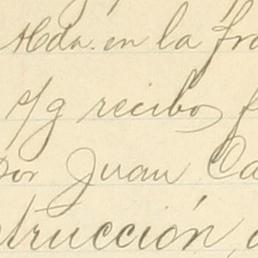 Hda. en la fro
s/g recibos f
por Juan Ca
strucción, d